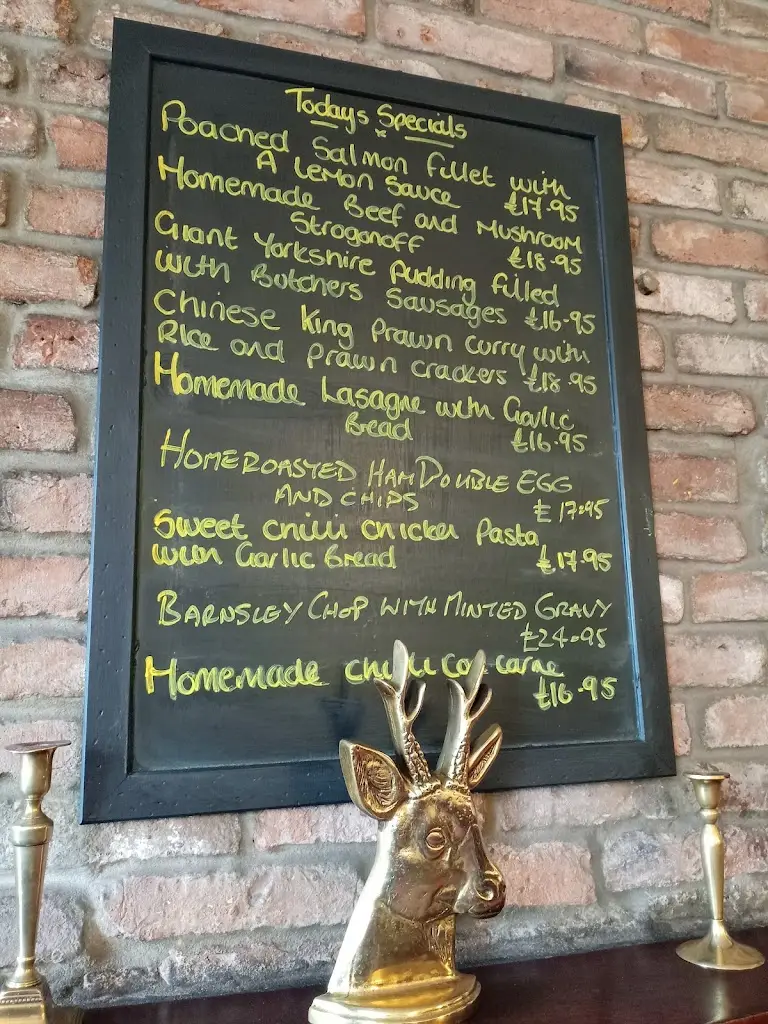 Todays Specials
Poached Salmon fillet with
A Lemon Sauce £17.95
Homemade Beef and Mushroom
Stroganoff £18.95
Giant Yorkshire Pudding filled
with Butchers Sausages £16.95
Chinese King Prawn curry with
Rice and Prawn crackers £18.95
Homemade Lasagne with Garlic
Bread £16.95
HOMEROASTED HAM DOUBLE EGG
AND CHIPS £17.95
Sweet chilli chicken Pasta
with Garlic Bread £17.95
BARNSLEY CHOP WITH MINTED GRAVY
£24.95
Homemade chilli con carne
£16.95